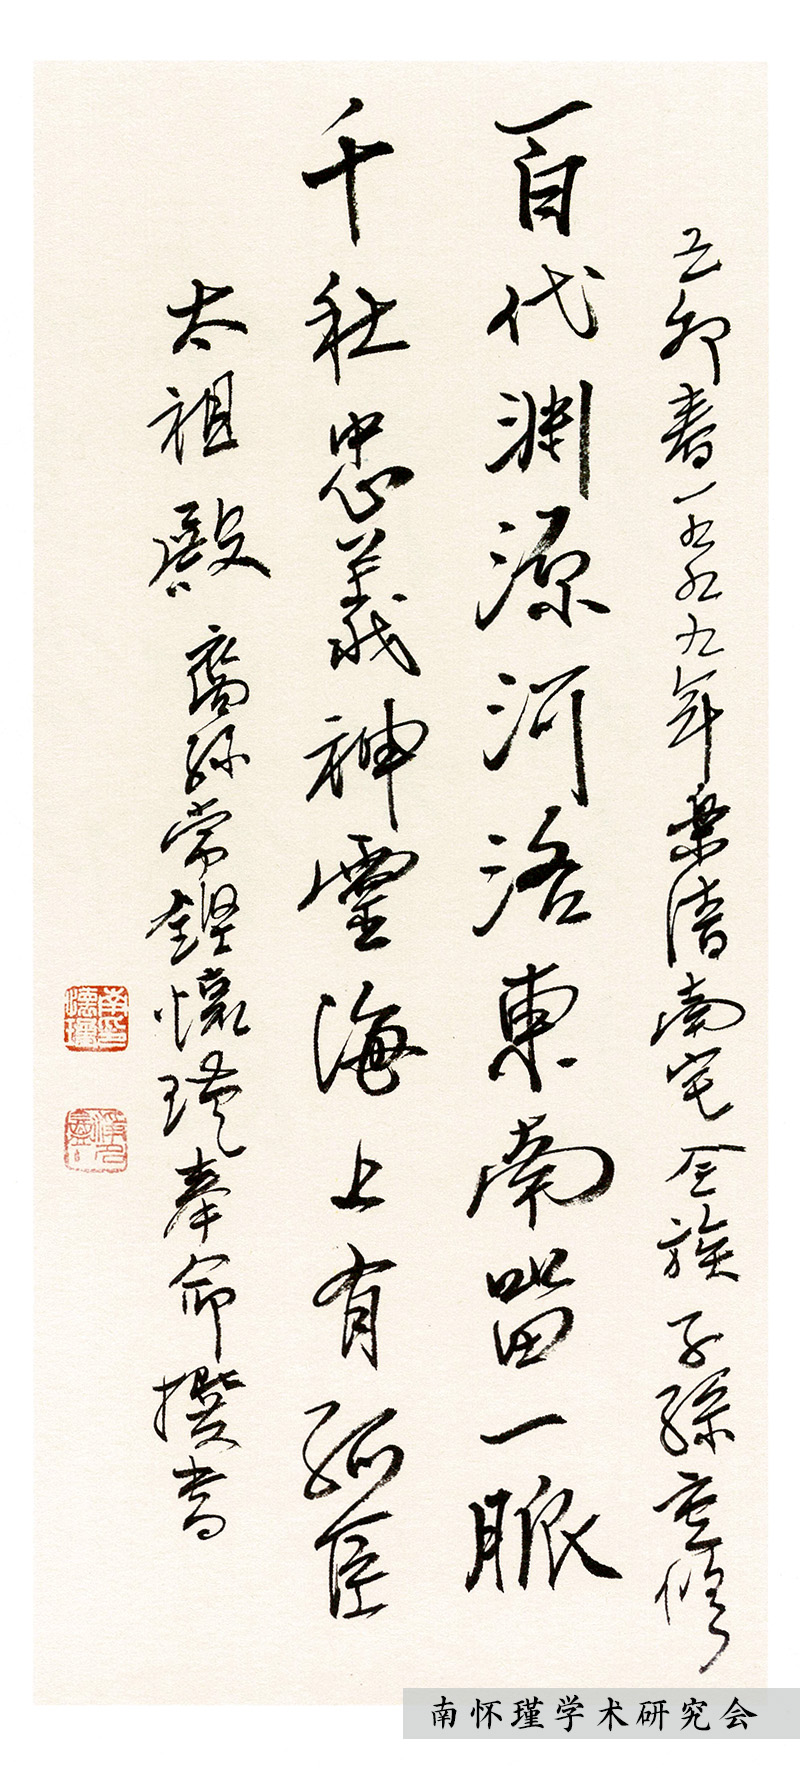 己卯春一九九九年樂清南宅全族子孫重修
百代淵源河洛東南留一脈
千社忠義神靈海上有孤臣
太祖殿 裔孫常鏗懷瑾奉命撰書
南懷瑾印
南怀瑾学术研究会